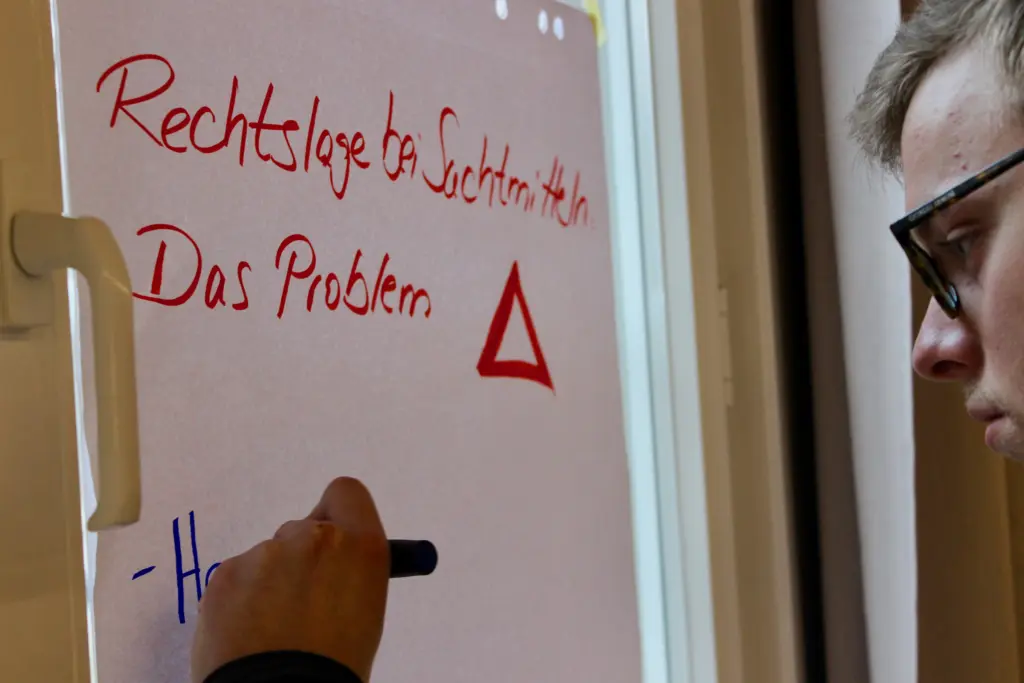 Rechtslage bei Sachtmitteln.
Das Problem
- H